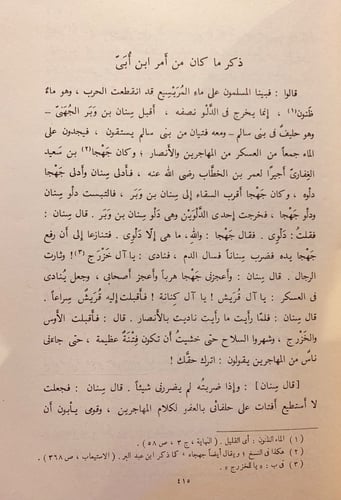 ذكر ما كان من أمر ابن أُبَىّ
قالوا : فبينا المسلمون على ماء المُرَيْسِيع قد انقطعت الحرب ، وهو ماءٌ
ظَنُون(١) ، إنما يخرج فى الدَّلْو نصفه ، أقبل سِنان بن وَبَر الجُهَنىّ –
وهو حليفٌ فى بنى سالم – ومعه فتيان من بنى سالم يستقون ، فيجدون على
الماء جمعاً من العسكر من المهاجرين والأنصار ؛ وكان جَهْجا(٢) بن سَعيد
الغِفارىّ أجيرًا لعمر بن الخطَّاب رضى الله عنه ، فأدلى سِنان وأدلى جَهْجا
دلوه ، وكان جَهْجا أقرب السقاء إلى سِنان بن وَبَر ، فالتبست دلو سِنان
ودلو جَهْجا ، فخرجت إحدى الدَّلْوَيْن وهى دلو سِنان بن وَبَر . قال سِنان :
فقلتُ : دَلْوى . فقال جَهْجا : والله ، ما هى إلّا دَلْوى . فتنازعا إلى أن رفع
جَهْجا يده فضرب سِناناً فسال الدم ، فنادى : يا آل خَزْرج(٣)! وثارت
الرجال . قال سِنان : وأعجزنى جَهْجا هرباً وأعجز أصحابى ، وجعل يُنادى
فى العسكر : يا آل قُرَيش ! يا آل كِنانة ! فأقبلت إليه قُرَيش سِراعاً .
قال سِنان : فلمّا رأيت ما رأيت ناديت بالأنصار . قال : فأقبلت الأَوس
والخَزْرج ، وشهروا السلاح حتى خشيتُ أن تكون فِتنةٌ عظيمة ، حتى جاءنى
ناسٌ من المهاجرين يقولون : اترك حقَّك !
[قال سِنان] : وإذا ضربتُه لم يضررنى شيئاً . قال سِنان : فجعلت
لا أستطيع أفتات على حلفائى بالعفو لكلام المهاجرين ، وقومى يأبون أن
(١) الماء الظنون : أى القليل . (النهاية ، ج ٣ ، ص ٥٨) .
(٢) هكذا فى النسخ ؛ ويقال أيضاً جهجاه ، كما ذكر ابن عبد البر . (الاستيعاب ، ص ٣٦٨) .
(٣) فى ب : « يا للخزرج » .
٤١٥